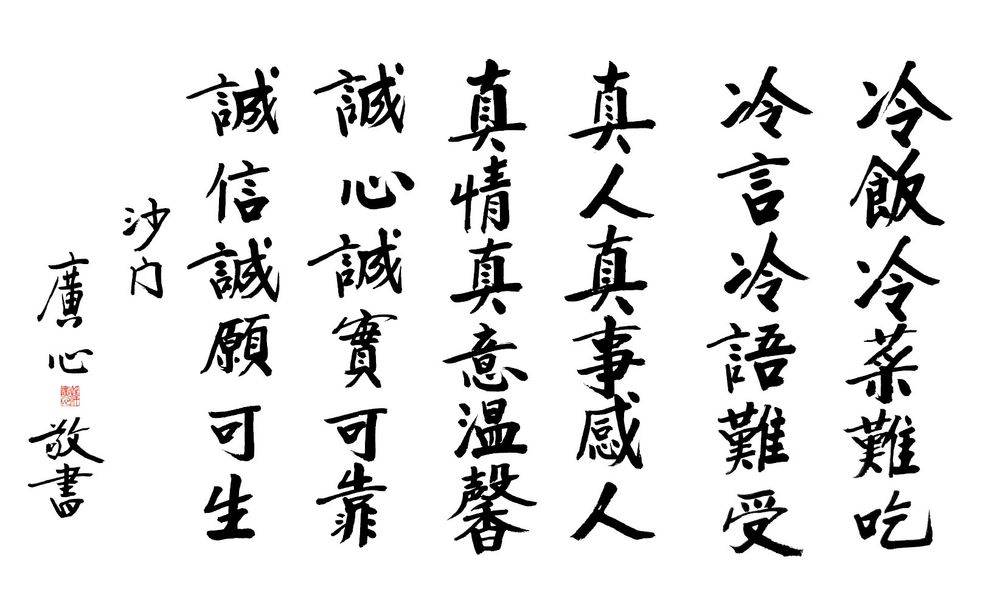 冷飯冷菜難吃
冷言冷語難受
真人真事感人
真情真意温馨
誠心誠實可靠
誠信誠願可生
沙门
廣心
敬書